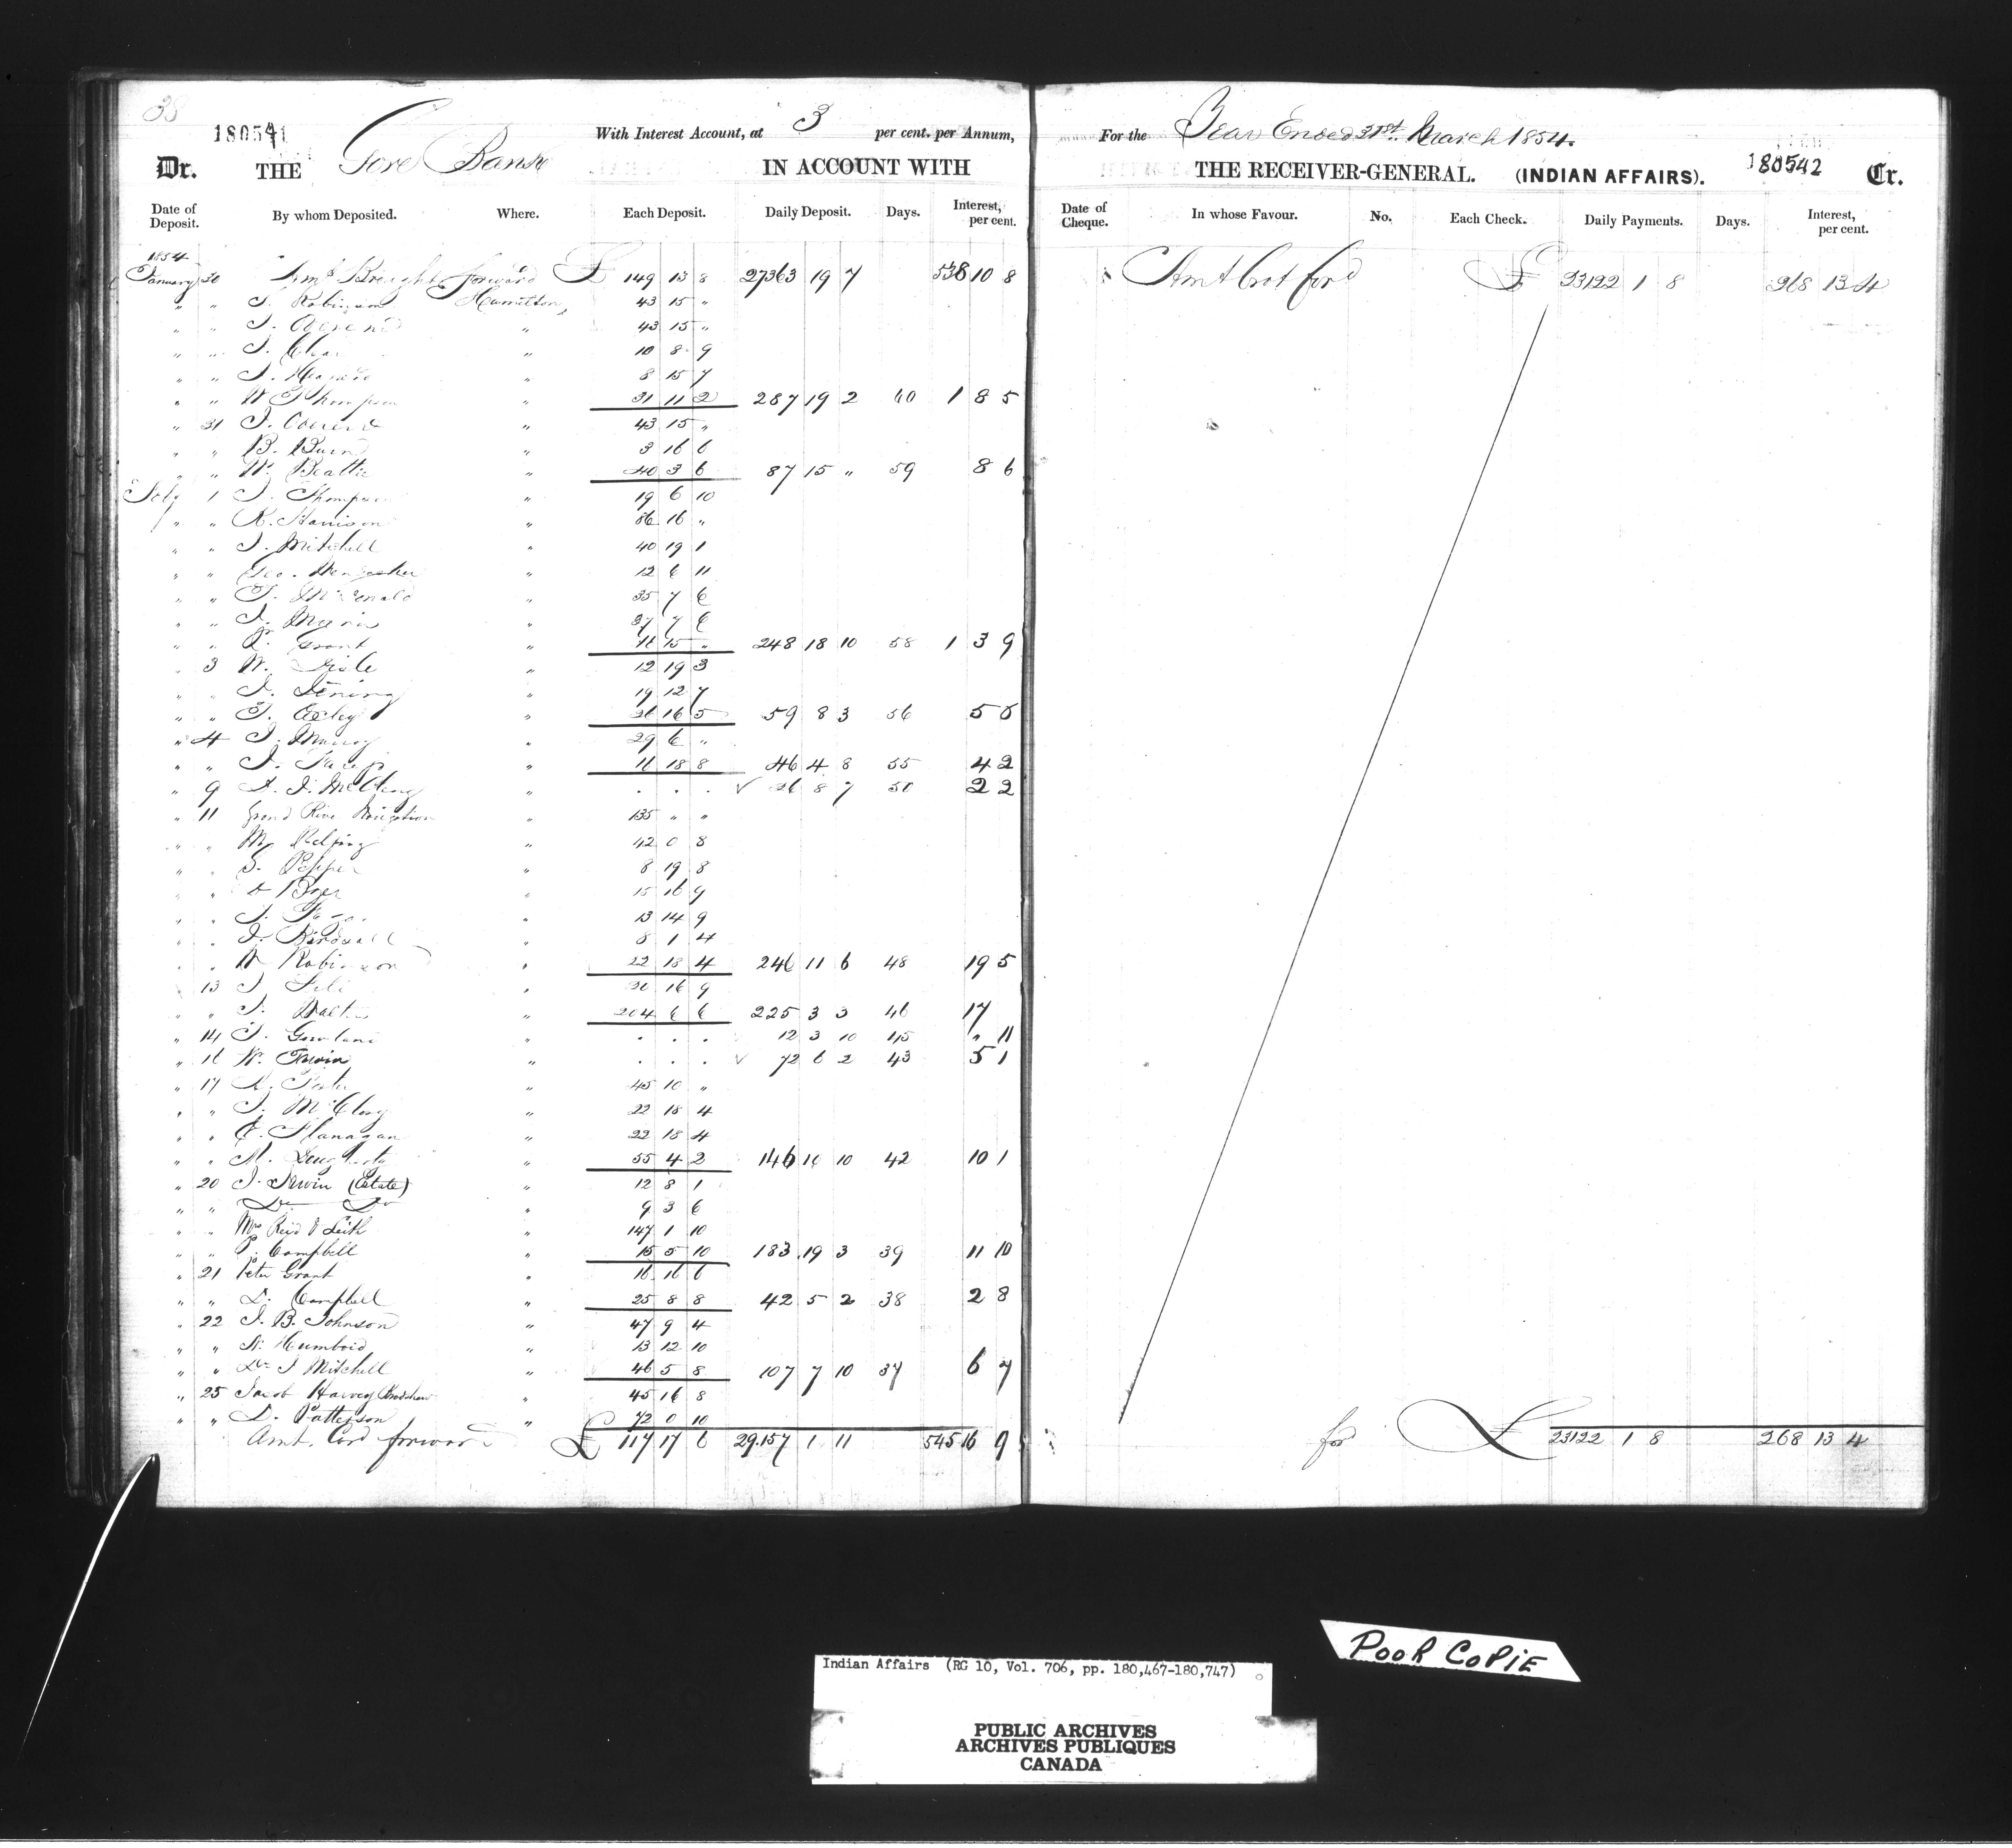 38
180541
With Interest Account, at 3 per cent. per Annum,
Dr. THE Gore Bank IN ACCOUNT WITH
Date of Deposit. By whom Deposited. Where. Each Deposit. Daily Deposit. Days. Interest, per cent.
1854
January 30 Amt Brought forward £ 149 13 8 27363 19 7 538 10 8
" " J. Robinson Hamilton 43 15 "
" " J. 43 15 "
" " J. 10 8 9
" " J. 8 15 7
" " W Thompson " 31 11 2 287 19 2 60 1 8 5
" 31 J. " 43 15 "
" " B. " 3 16 6
" " W. Beattie " 40 3 6 87 15 " 59 8 6
Feby 1 J. Thompson " 19 6 10
" " R. Harrison " 86 16 "
" " J. Mitchell " 40 19 1
" " Geo. " 12 6 11
" " J. McDonald " 35 7 6
" " J. " 37 7 6
" " P. Grant " 16 15 " 248 18 10 58 1 3 9
" 3 W. " 12 19 3
" " J. " 19 12 7
" " J. " 26 16 5 59 8 3 56 5 6
" 4 J. " 29 6 "
" " J. " 16 18 8 46 4 8 55 4 2
" 9 " . . . √ 26 8 7 50 2 2
" 11 Grand River Navigation " 135 " "
" " " 42 0 8
" " S. Pepper " 8 19 8
" " " 15 16 9
" " J. " 13 14 9
" " J. Birdsall " 8 1 4
" " W Robinson " 22 18 4 246 11 6 48 19 5
" 13 J " 20 16 9
" " J. Walton " 204 6 6 225 3 3 46 17
" 14 J. " . . . 12 3 10 45 " 11
" 16 W. Irwin " . . . √ 72 6 2 43 5 1
" 17 " 45 10 "
" " J. McClurg " 22 18 4
" " Flanagan " 22 18 4
" " " 55 4 2 146 10 10 42 10 1
" 20 J. Irwin (Estate) " 12 8 1
" " Do Do " 9 3 6
" " Reid & Leith " 147 1 10
" " P. Campbell " 15 5 10 183 19 3 39 11 10
" 21 Peter Grant " 16 16 6
" " D. Campbell " 25 8 8 42 5 2 38 2 8
" 22 J. B. Johnson " 47 9 4
" " " 13 12 10
" " Dr J Mitchell 46 5 8 107 7 10 37 6 7
" 25 Jacob Harvey Bradshaw " 45 16 8
" " D. Patterson " 72 0 10
Amt. Card forward £ 117 17 6 29.157 1 11 545 16 9
For the Year Ended 31st March 1854.
THE RECEIVER-GENERAL. (INDIAN AFFAIRS). 180542 Cr.
Date of Cheque. In whose Favour. No. Each Check. Daily Payments. Days. Interest, per cent.
Amt brot ford £ 23122 1 8 268 13 4
for £ 23122 1 8 268 13 4
POOR COPIE
Indian Affairs (RG 10, Vol. 706, pp. 180,467-180,747)
PUBLIC ARCHIVES
ARCHIVES PUBLIQUES
CANADA